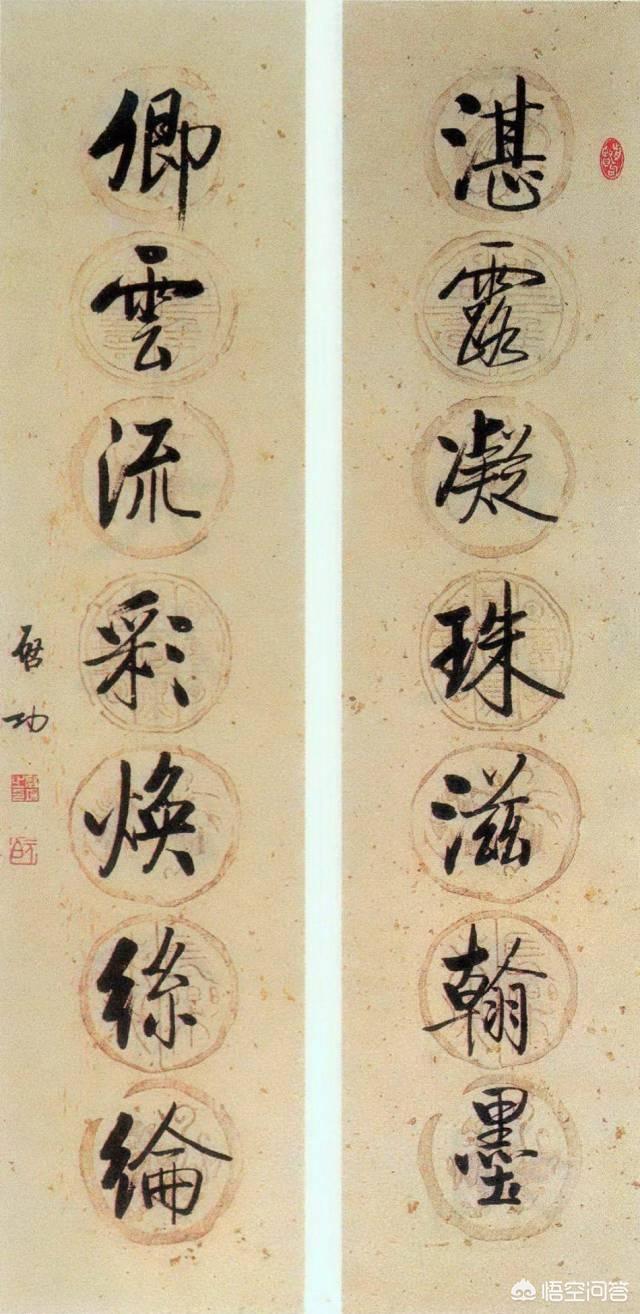 湛露凝珠滋翰墨
卿雲流彩煥絲綸
啓功
悟空问答